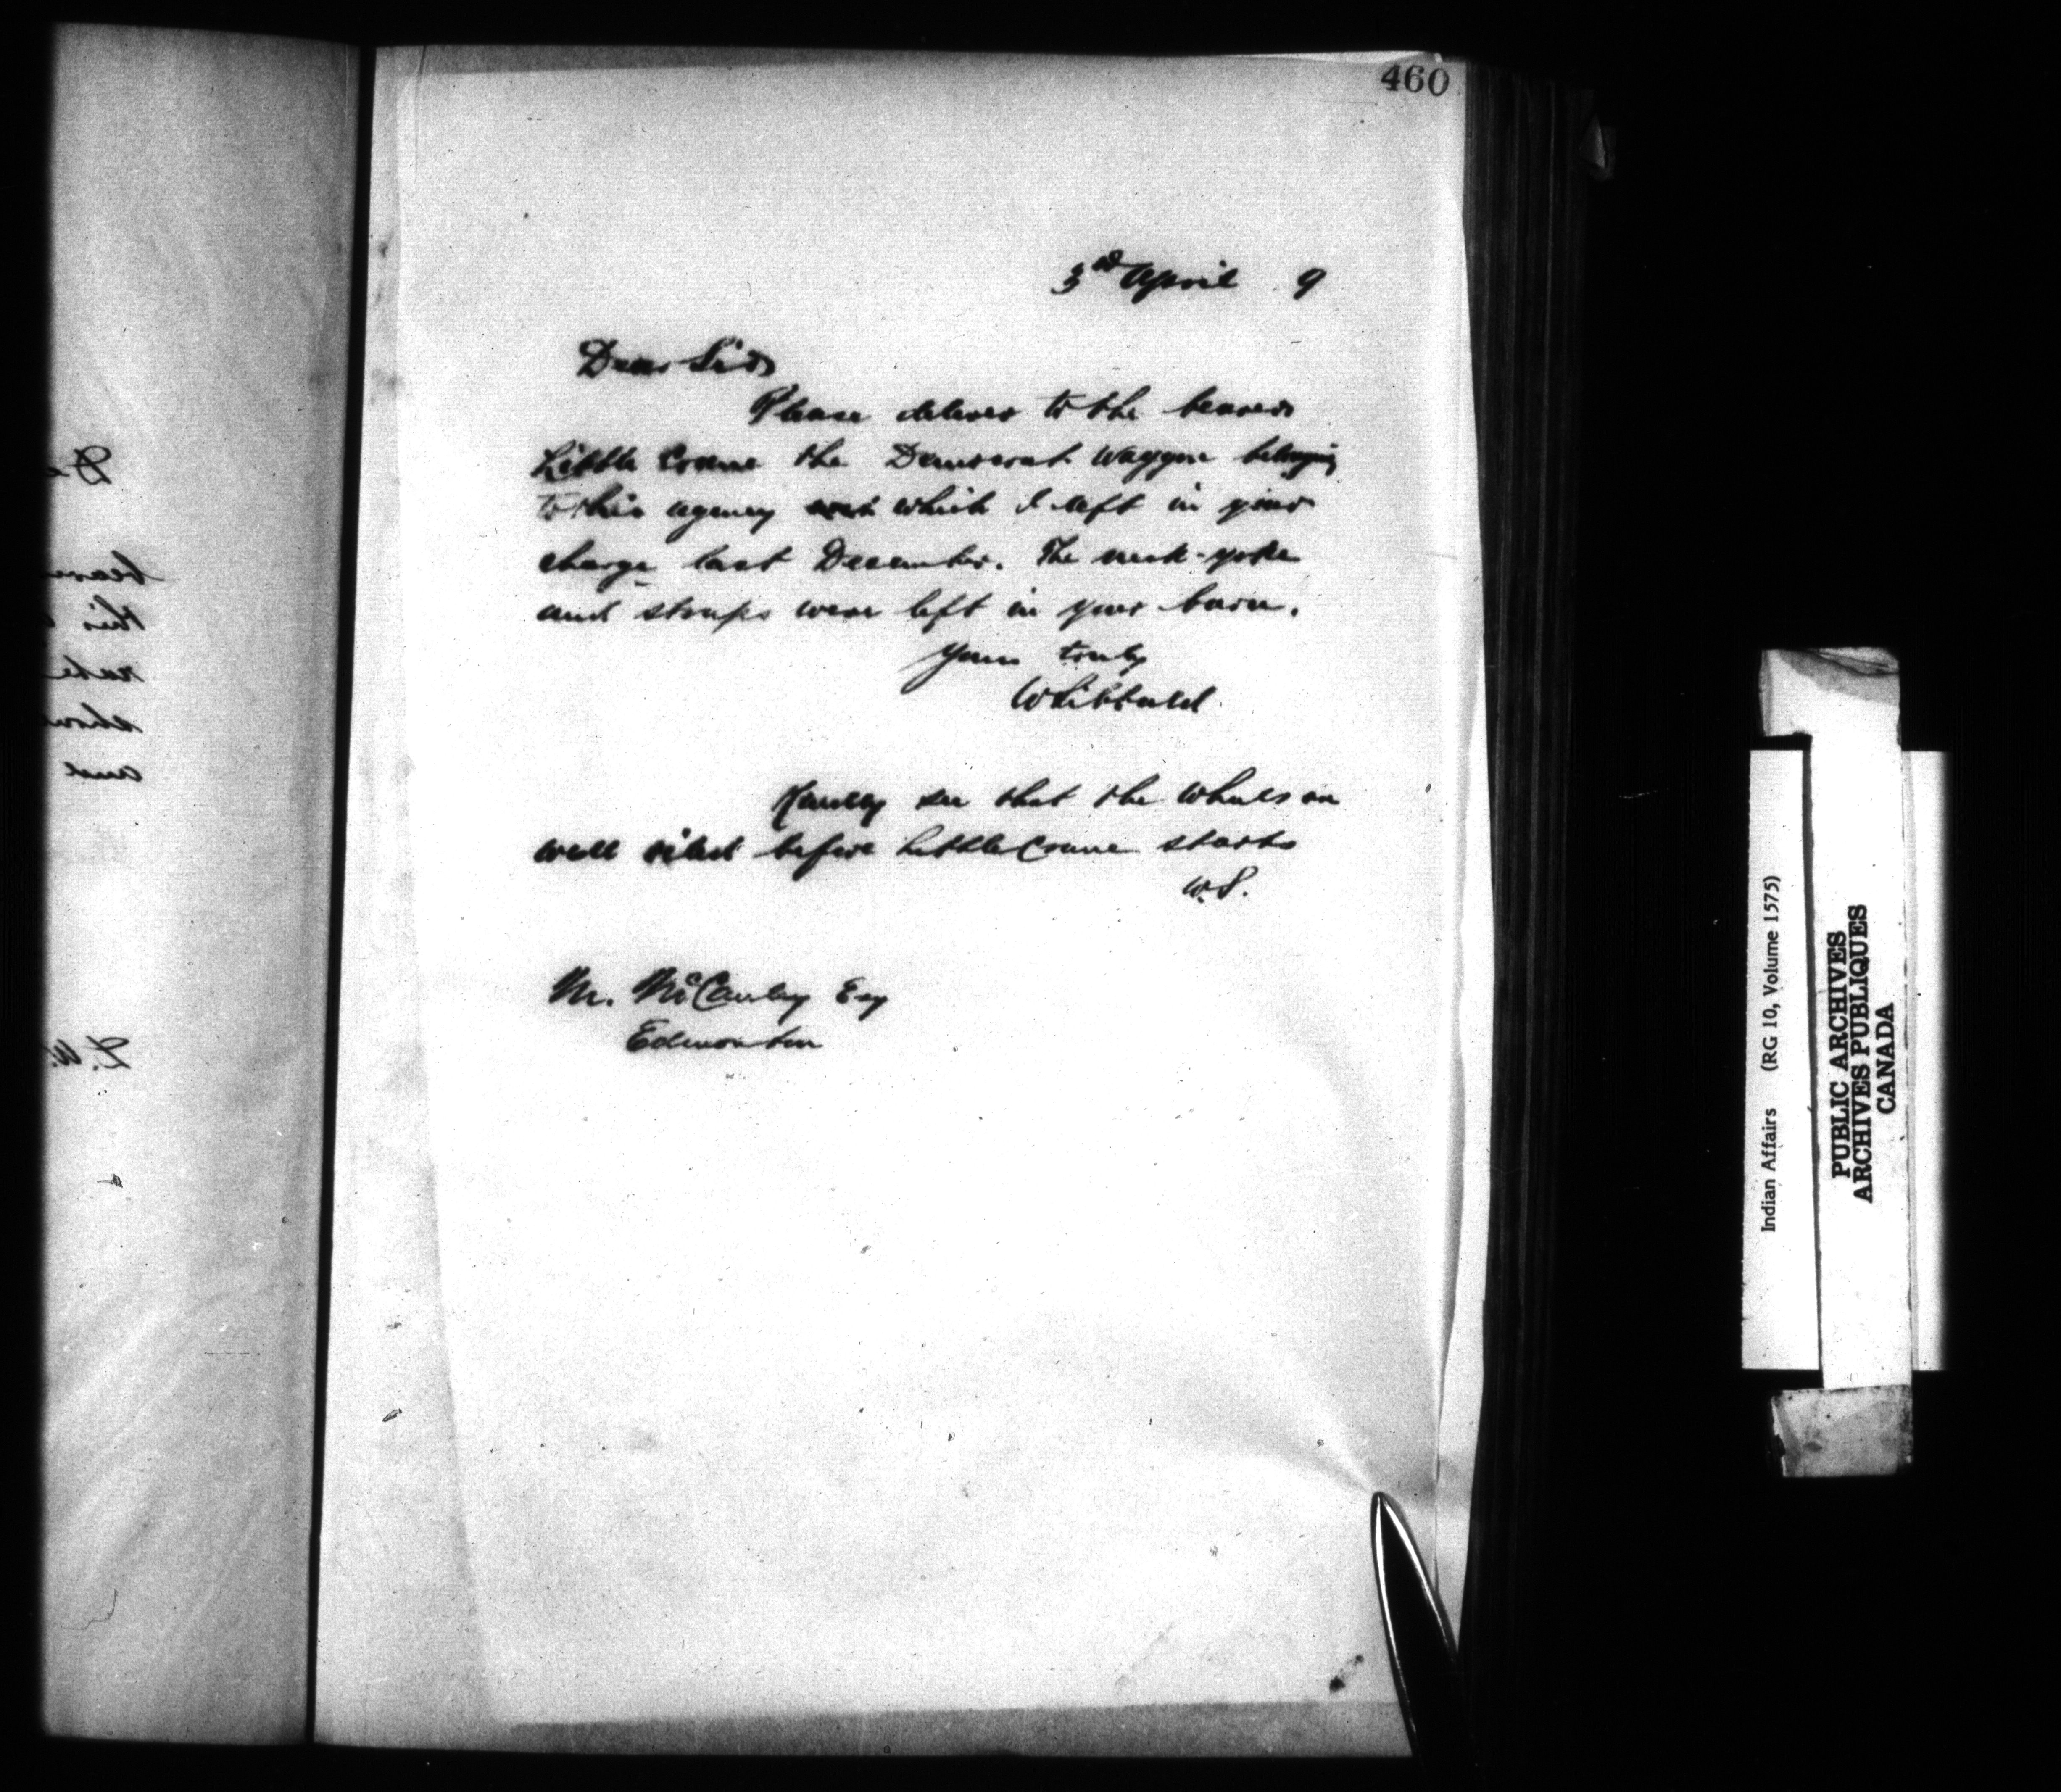 460
3rd April 9
Dear Sir
Please deliver to the bearer
Little Crane the Democrat Waggon belonging
to this agency which I left in your
charge last December. The neck-yoke
and straps were left in your barn.
Yours truly
Kindly see that the wheels are
well oiled before Little Crane starts
W.S.
M. McCauley Esq
Edmonton
Indian Affairs (RG 10, Volume 1575)
PUBLIC ARCHIVES
ARCHIVES PUBLIQUES
CANADA